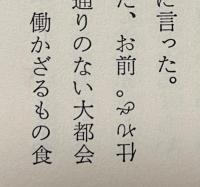 に言った。
た、お前。仕
通りのない大都会
働かざるもの食